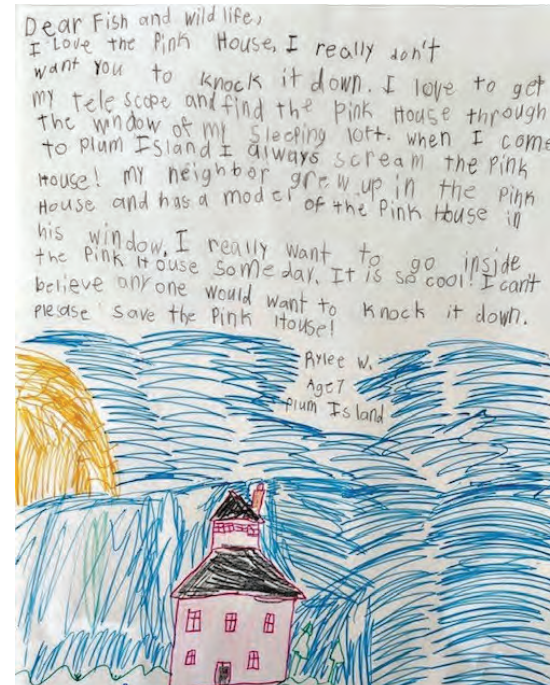 Dear Fish and wildlife,
I Love the Pink House, I really don't
want you to knock it down. I love to get
my telescope and find the Pink House through
the window of my sleeping loft. when I come
to Plum Island I always scream the Pink
House! my neighbor grew up in the Pink
House and has a model of the Pink House in
his window, I really want to go inside
the Pink House someday. It is so cool! I can't
believe anyone would want to knock it down.
Please save the Pink House!
Rylee W.
Age 7
Plum Island